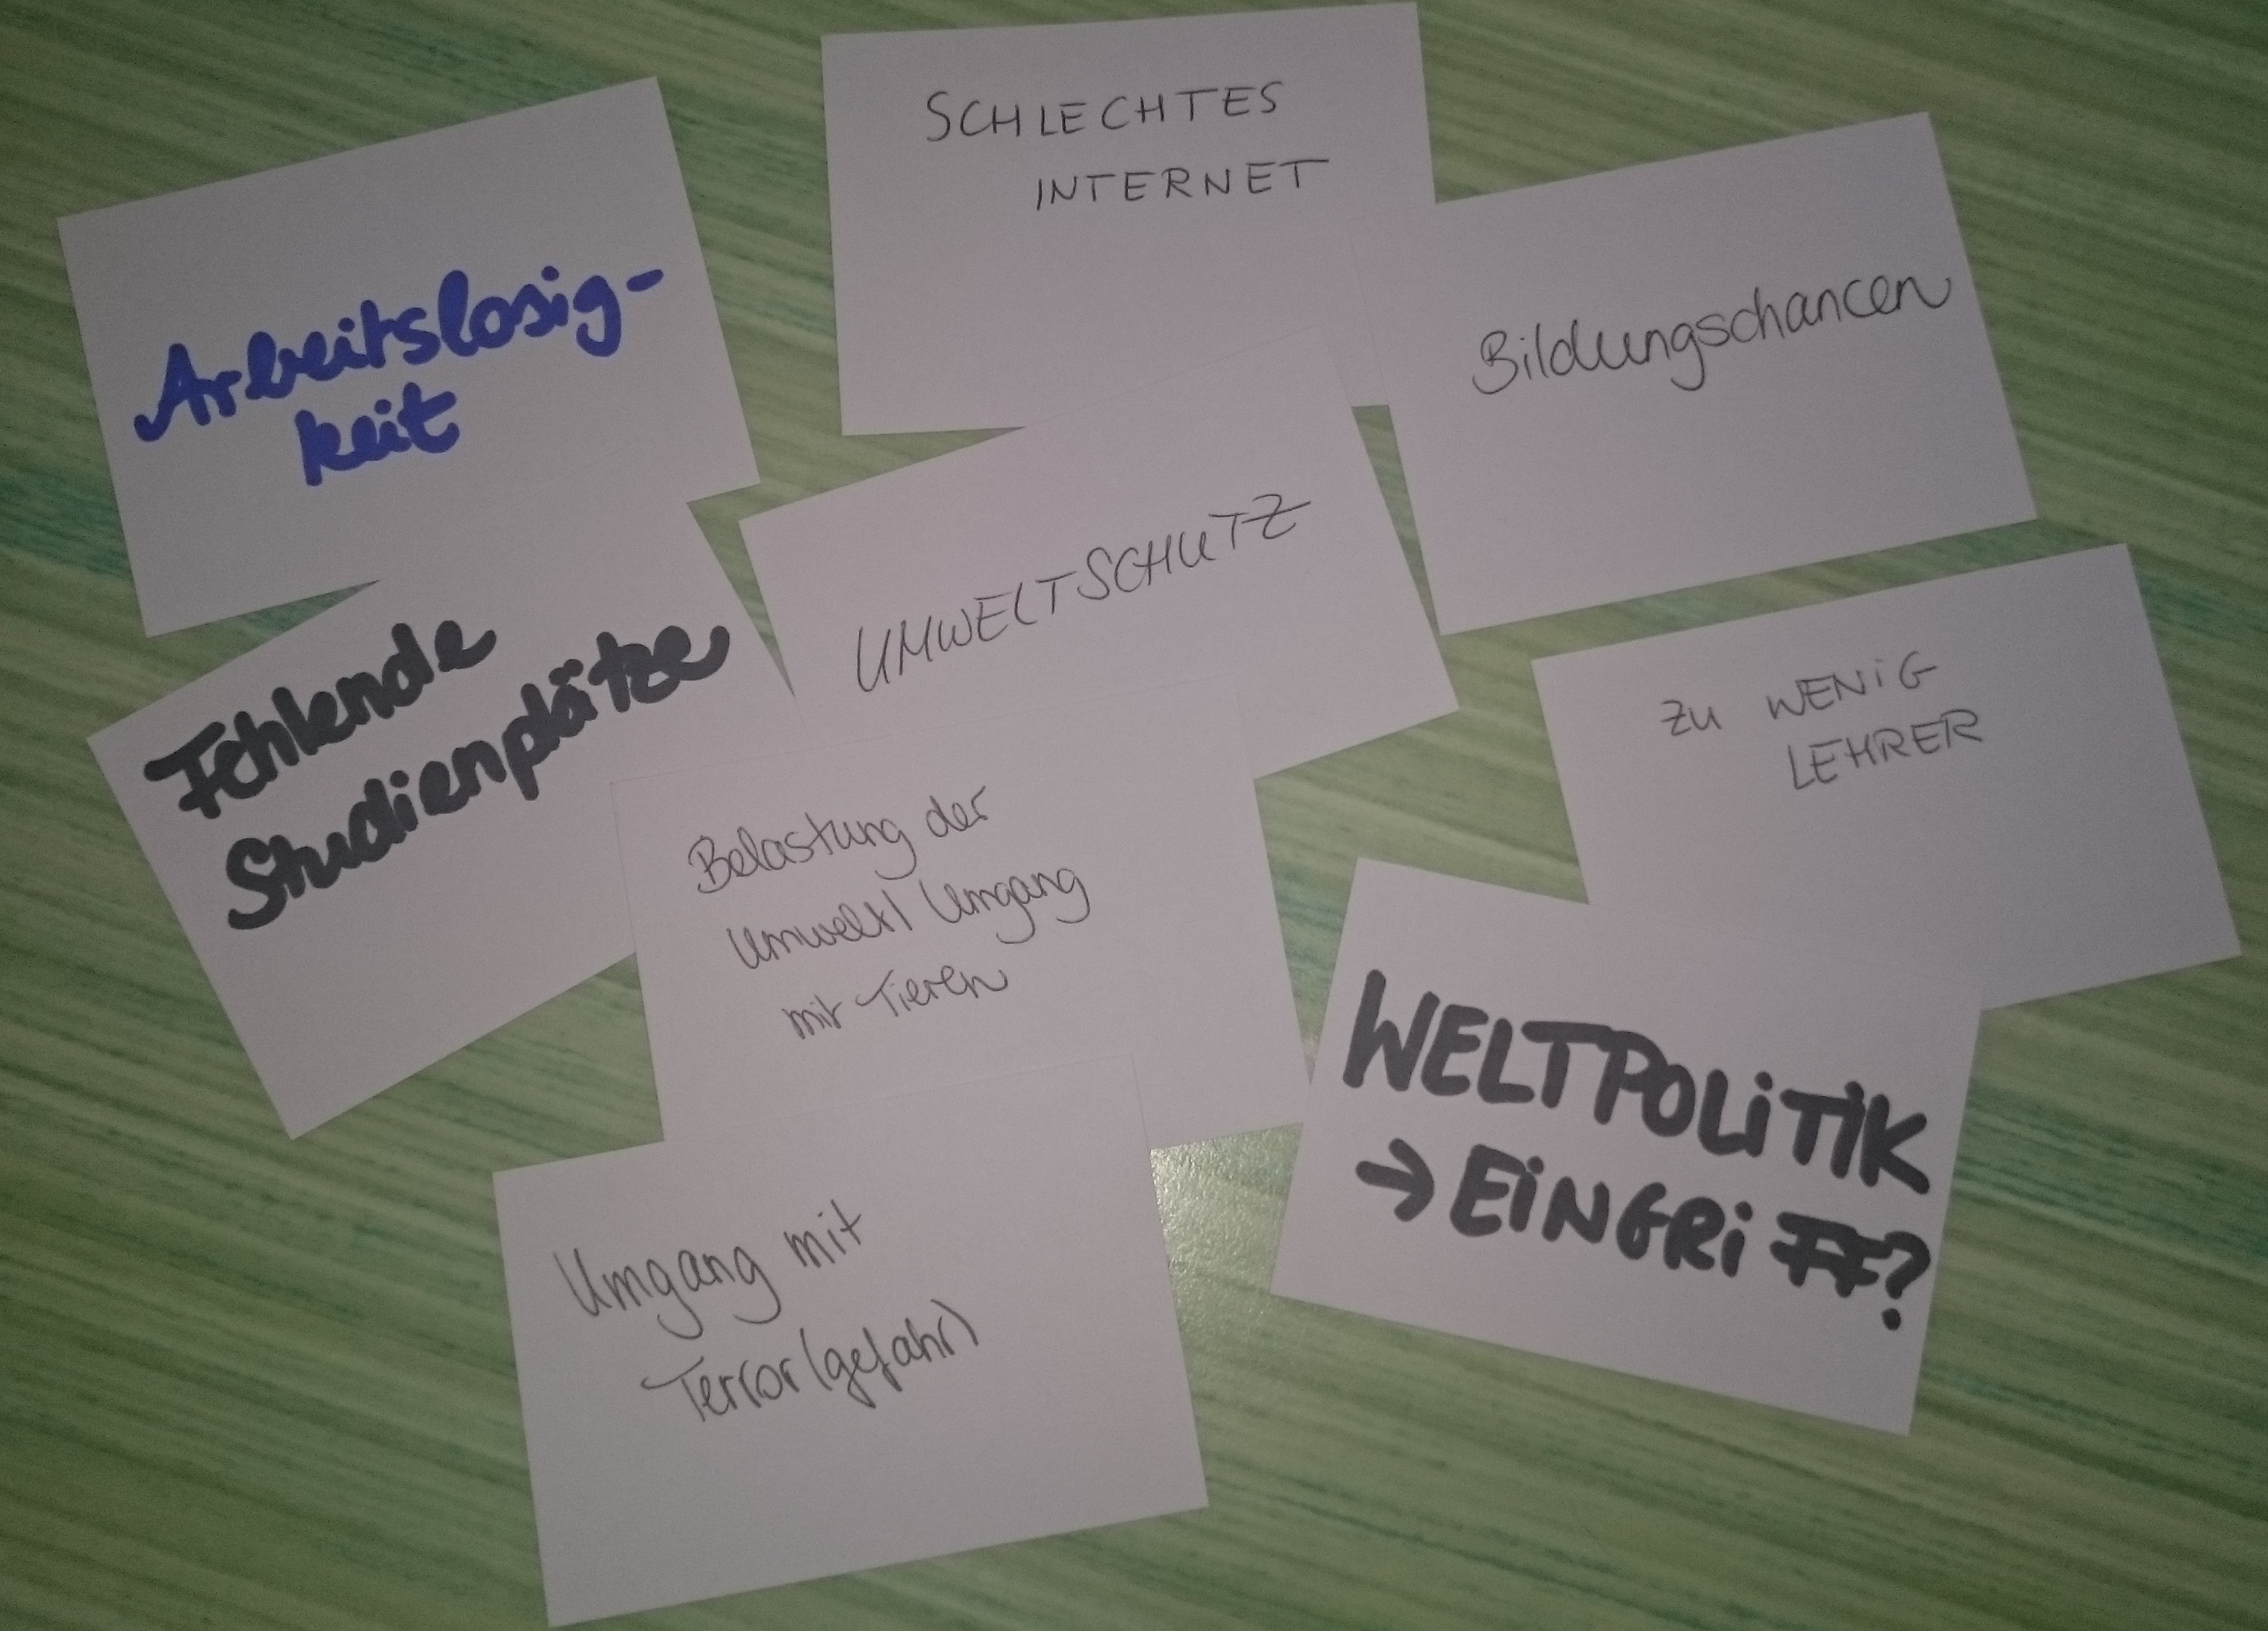 SCHLECHTES
INTERNET
Arbeitslosig-
keit
Bildungschancen
UMWELTSCHUTZ
Fehlende
Studienplätze
ZU WENiG
LEHRER
Belastung der
Umwelt/ Umgang
mit Tieren
WELTPOLiTiK
→ EiNGRiFF?
Umgang mit
Terror(gefahr)